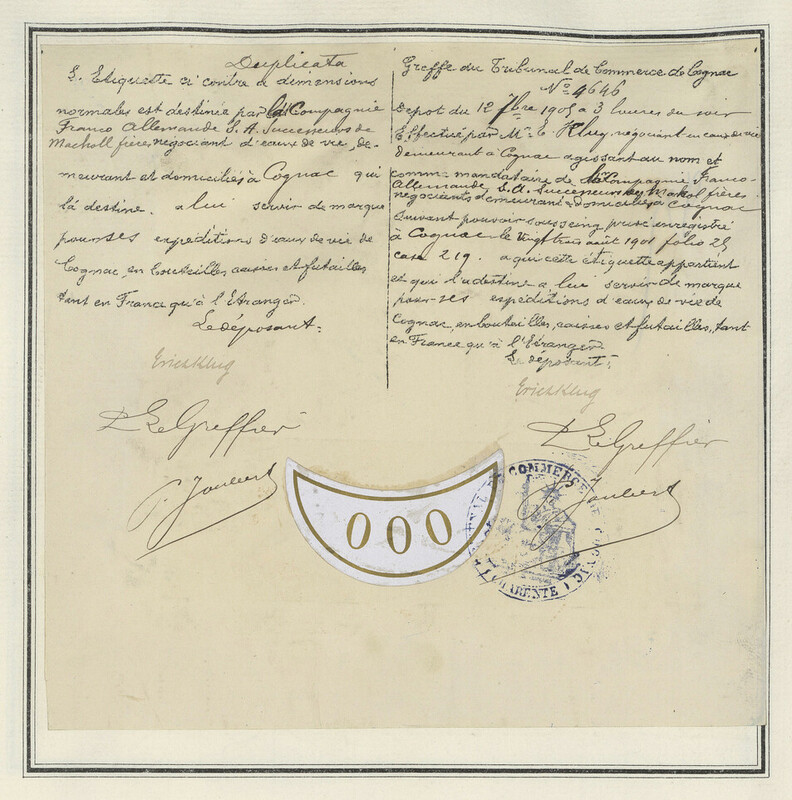 Duplicata
L. Etiquette ci contre a dimensions
normales est destinée par la Compagnie
Franco Allemande S. A. Successeurs de
Macholl frères négociant d'eaux de vie, de-
meurant et domiciliés à Cognac qui
la destine a lui servir de marque
pour ses expéditions d'eaux de vie de
Cognac, en bouteilles caisses et futailles
tant en France qu'à l'Etranger.
Le déposant:
Erich Klug
P Le Greffier
P. Joubert
Greffe du Tribunal de Commerce de Cognac
No 4646
Depot du 12 7bre 1905 a 3 heures du soir
Effectué par Mr. E. Klug, négociant en eaux de vie
demeurant à Cognac agissant au nom et
comme mandataire de la Compagnie Franco-
Allemande, S. A. Successeurs de Makol frères
négociants demeurant & domiciliés à Cognac
suivant pouvoir sous seing privé enregistré
à Cognac le vingt trois août 1901 folio 25
case 219. a qui cette étiquette appartient
et qui la destine a lui servir de marque
pour ses expéditions d'eaux de vie de
Cognac, en bouteilles, caisses et futailles, tant
en France qu'à l'Etranger
Le déposant:
Erich Klug
P Le Greffier
P. Joubert
000
TRIBUNAL DE COMMERCE DE COGNAC
CHARENTE